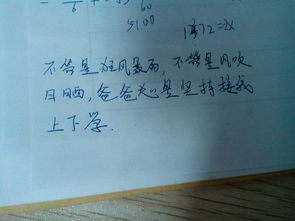 60
51.00
不管是狂风暴雨,不管是风吹
日晒,爸爸总是坚持接我
上下学.